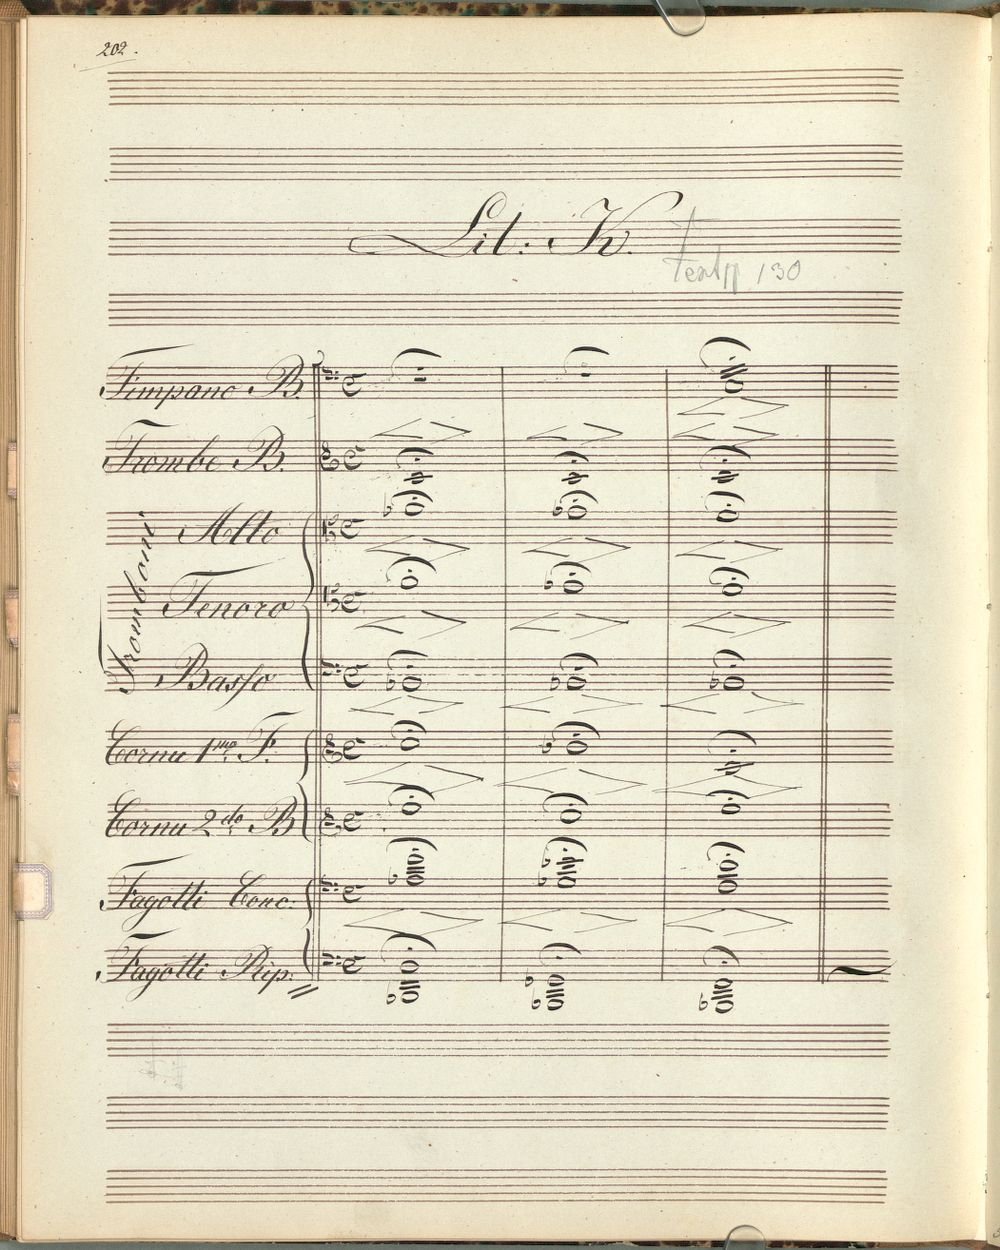 202.
Lit: K.
130
Timpano B.
Trombe B.
Tromboni
Alto
Tenoro
Basso
Cornu 1mo. F.
Cornu 2do. B
Fagotti Conc:
Fagotti Rip: